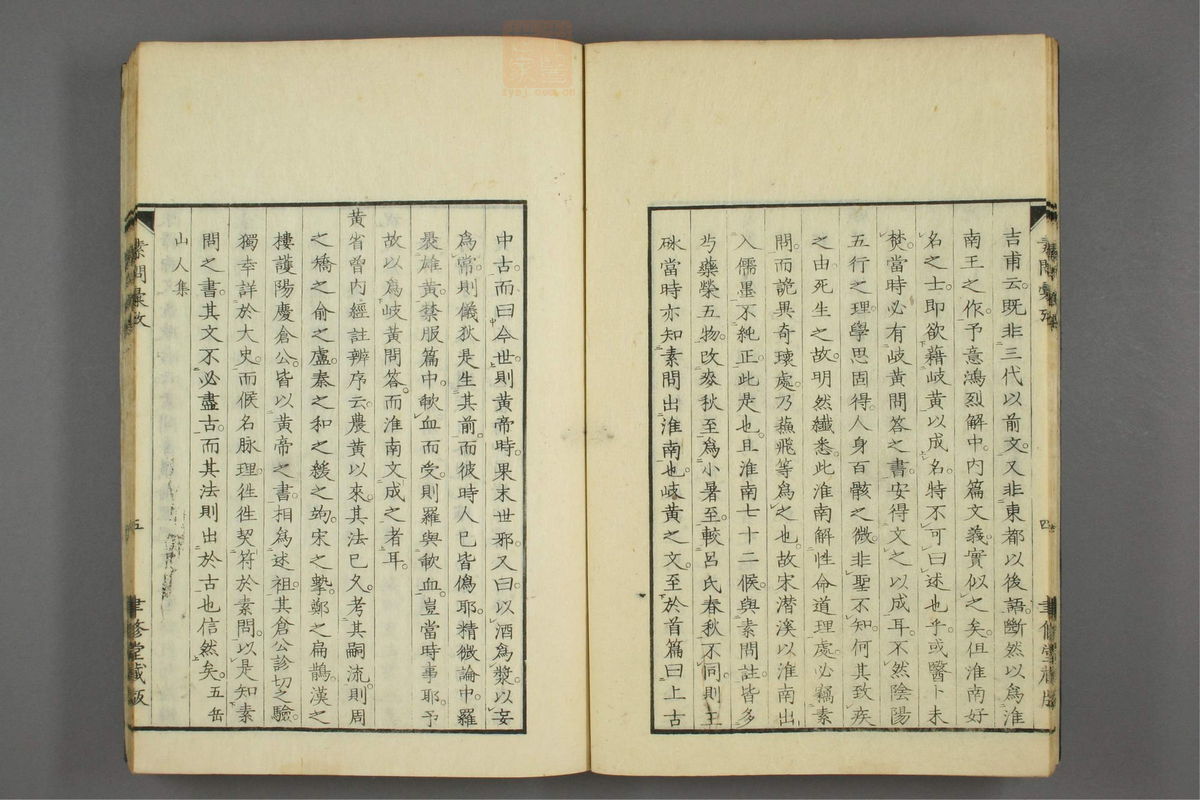 吉甫云。既非三代以前文。又非東都以後語。斷然以爲淮
南王之作。予意鴻烈解中。内篇文義。實似之矣。但淮南好
名之士。即欲藉岐黄以成名。特不可曰述也乎。或醫卜未
焚。當時必有岐黄問答之書。安得文之以成耳。不然陰陽
五行之理。學思固得。人身百骸之微。非聖不知。何其致疾
之由。死生之故。明然纎悉。此淮南解性命道理處。必竊素
問。而詭異奇瓌處。乃蘓飛等爲之也。故宋潛溪以淮南出
入儒墨不純正。此是也。且淮南七十二候。與素問註。皆多
芍藥榮五物。改麥秋至爲小暑至。較呂氏春秋不同。則王
氷當時亦知素問出淮南也。岐黄之文。至於首篇曰上古
四
聿修堂藏版
中古。而曰今世。則黄帝時。果末世邪。又曰。以酒爲漿。以妄
爲常。則儀狄是生其前。而彼時人已皆僞耶。精微論中。羅
㝡雄黄。禁服篇中。歃血而受。則羅與歃血。豈當時事耶。予
故以爲岐黄問答。而淮南文成之者耳。
黄省曾内經註辨序云。農黄以來。其法已久。考其嗣流。則周
之矯之俞之盧。秦之和之緩之竘。宋之摯。鄭之扁鵲。漢之
樓護陽慶倉公。皆以黄帝之書。相爲述祖。其倉公診切之驗。
獨幸詳於大史。而候名脉理。徃徃契符於素問。以是知素
問之書。其文不必盡古。而其法則出於古也信然矣。五岳
山人集
素問彙攷
五
聿修堂藏版